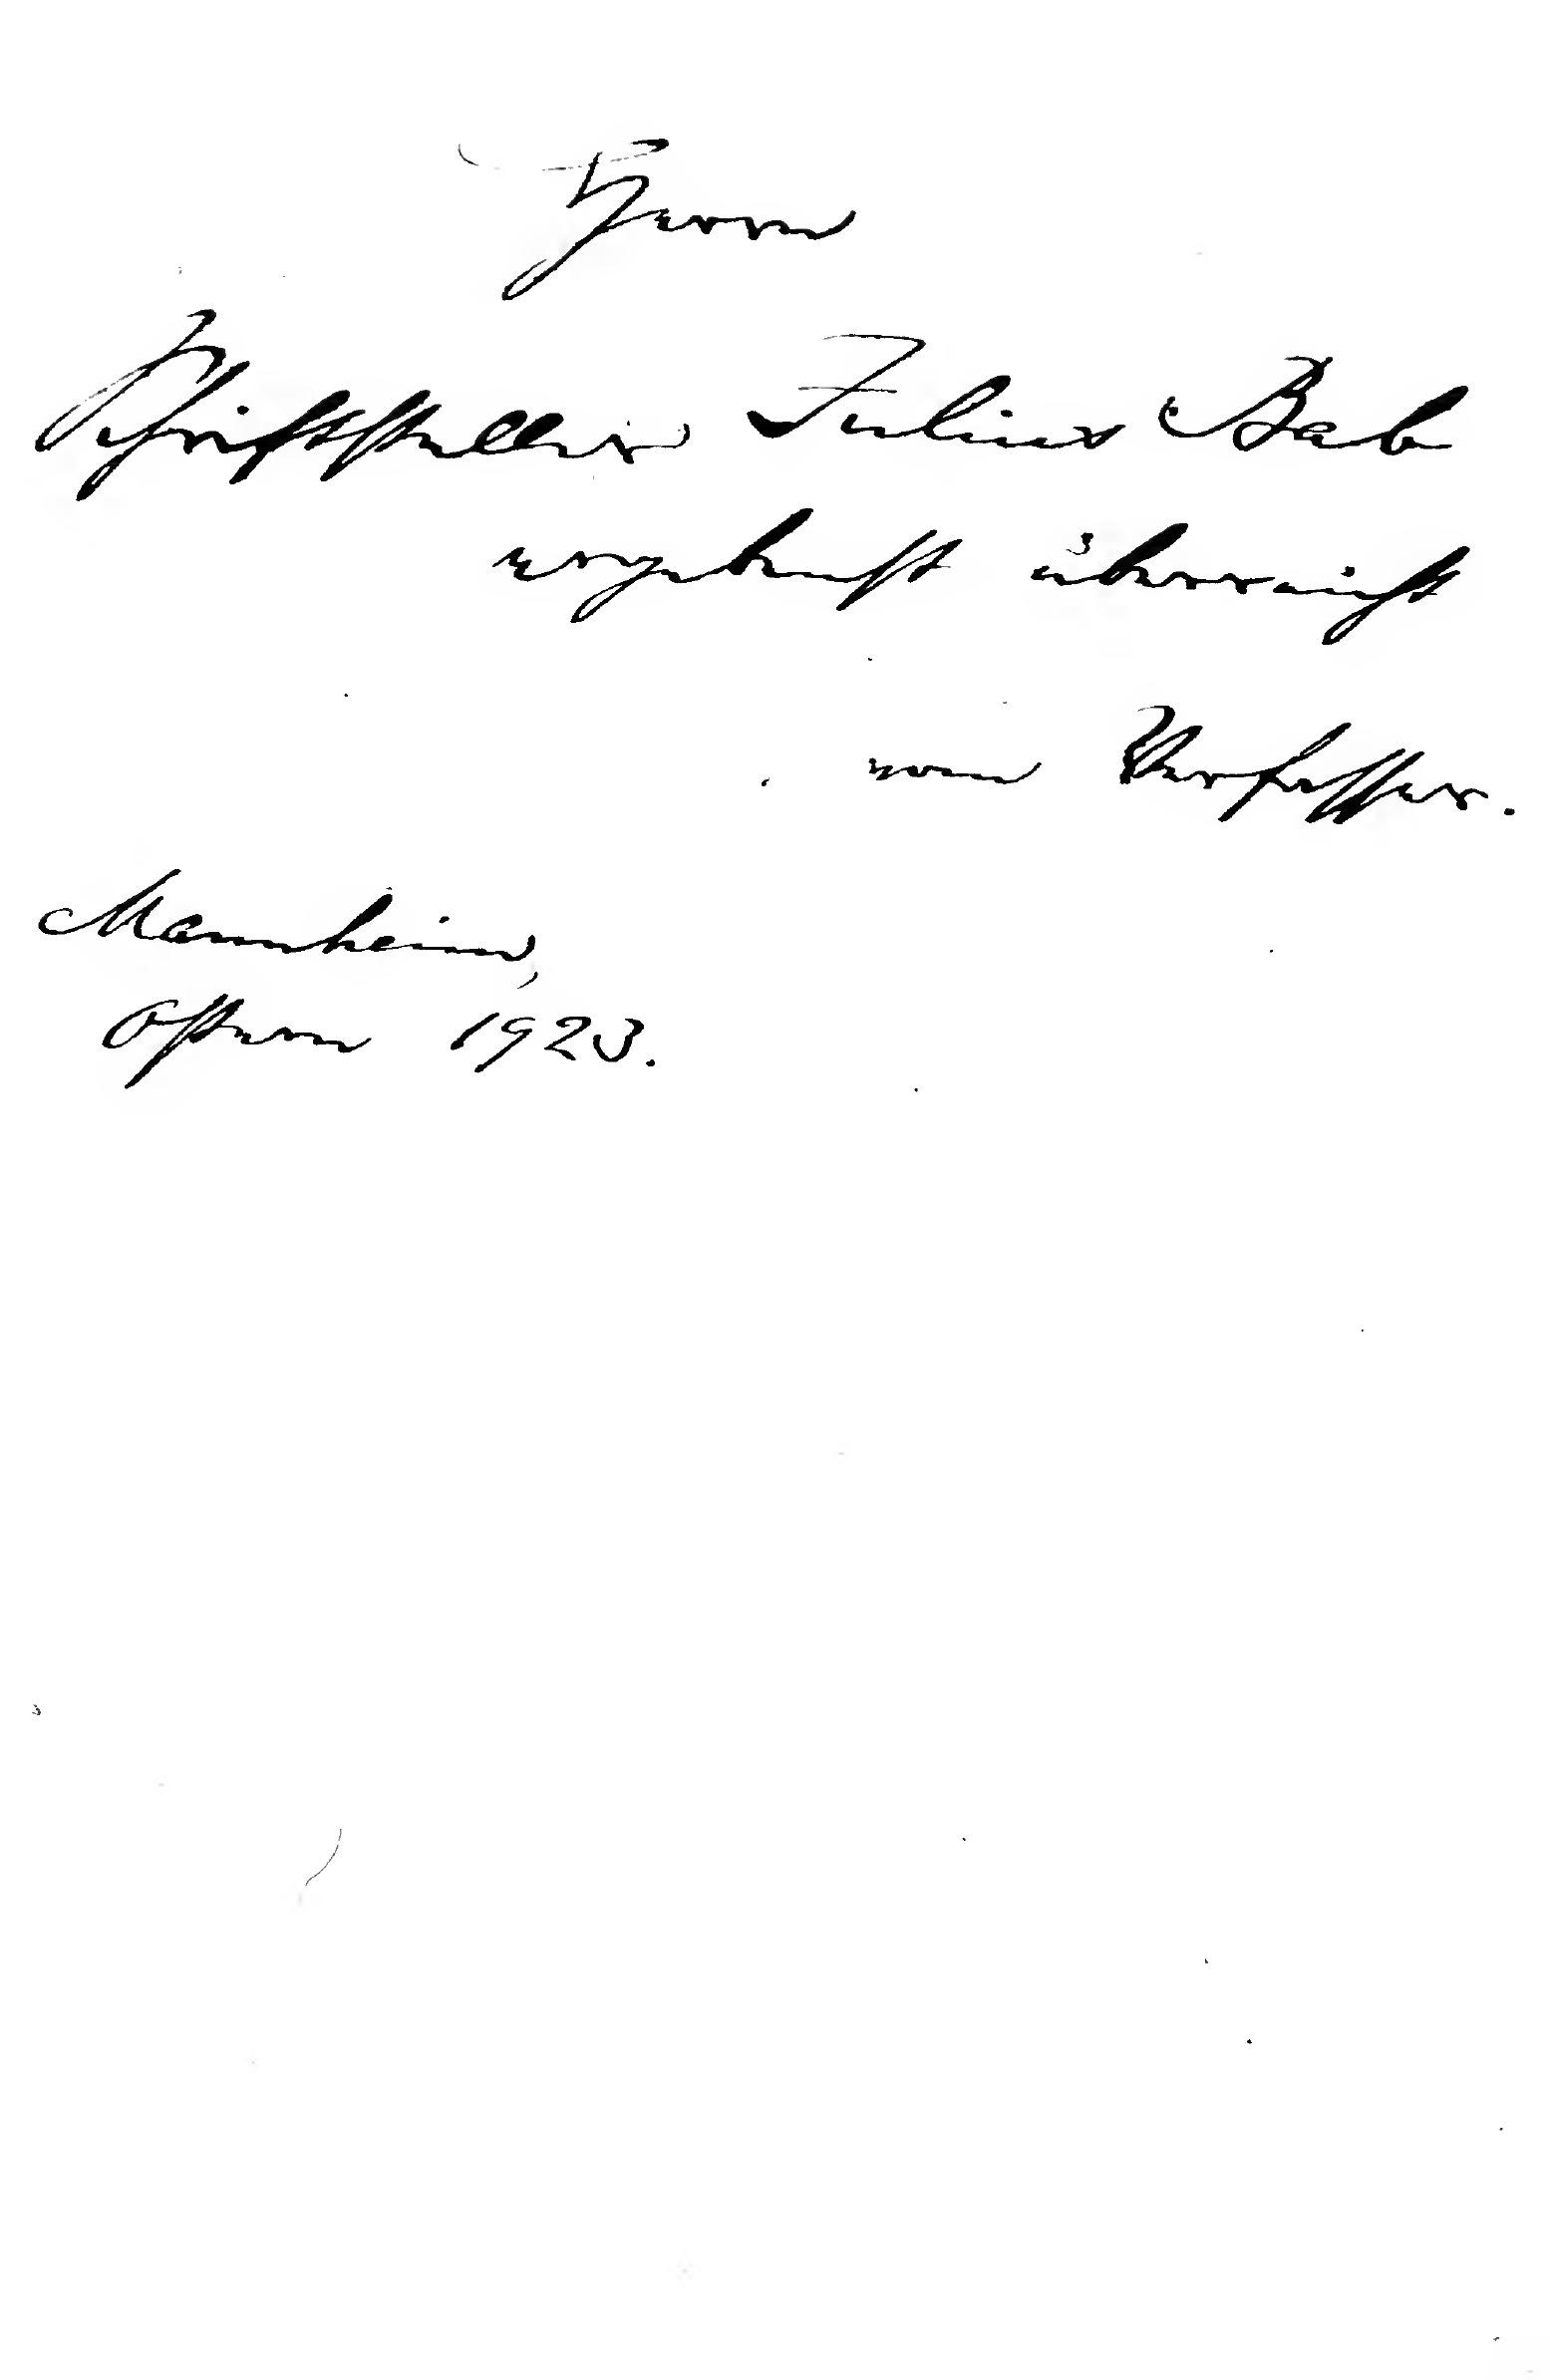 Herrn
Schriftsteller Julius Bab
ergebenst überreicht
vom Verfasser.
Mannheim,
Ostern 1923.